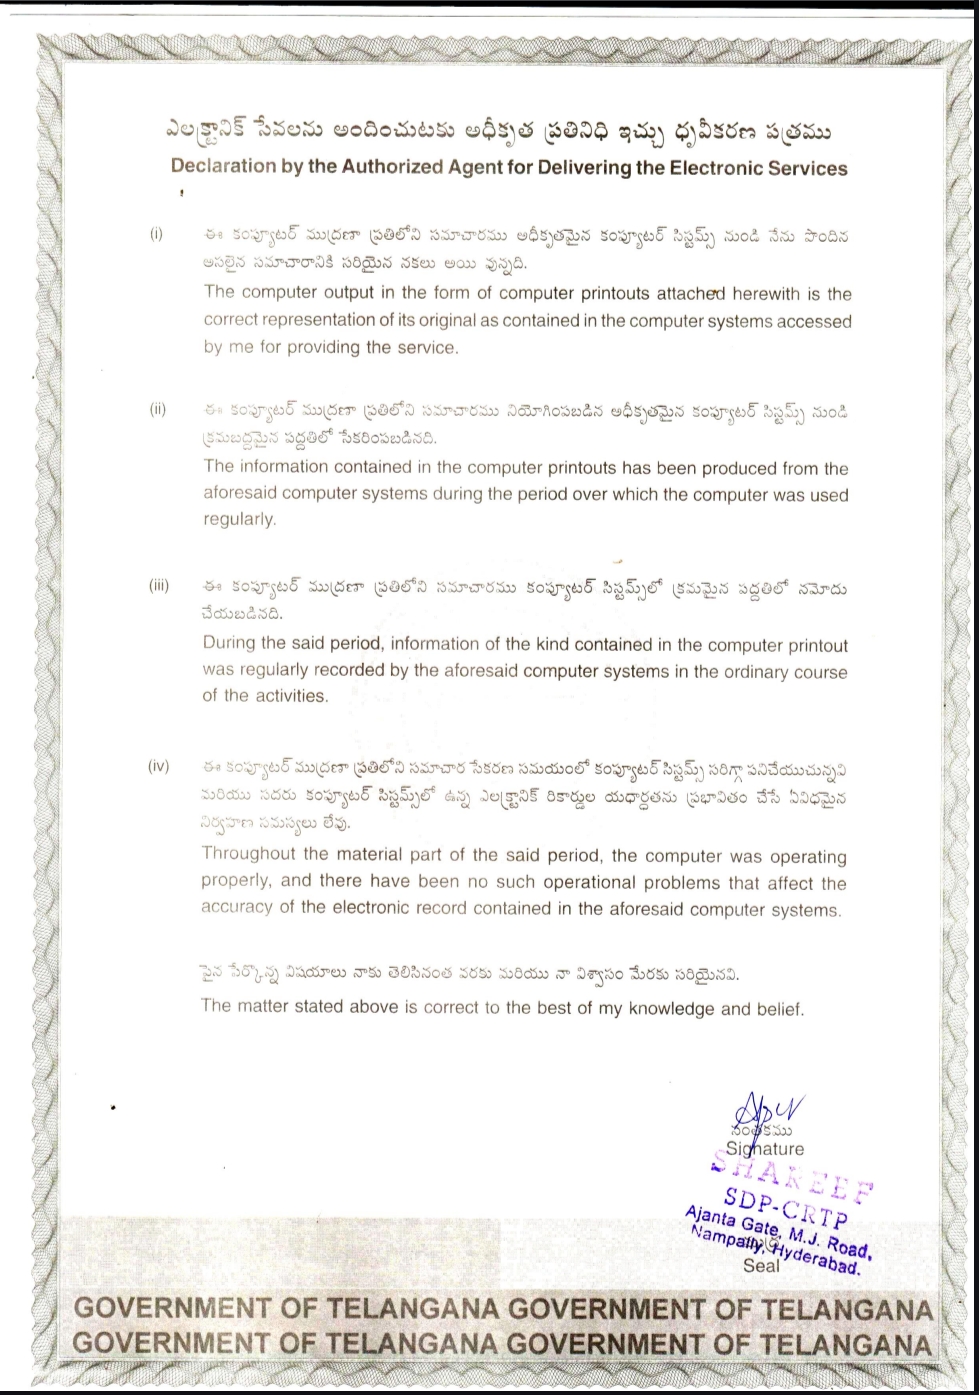 ఎలక్ట్రానిక్ సేవలను అందించుటకు అధీకృత ప్రతినిధి ఇచ్చు ధృవీకరణ పత్రము
Declaration by the Authorized Agent for Delivering the Electronic Services
(i) ఈ కంప్యూటర్ ముద్రణా ప్రతిలోని సమాచారము అధీకృతమైన కంప్యూటర్ సిస్టమ్స్ నుండి నేను పొందిన
అసలైన సమాచారానికి సరియైన నకలు అయి వున్నది.
The computer output in the form of computer printouts attached herewith is the
correct representation of its original as contained in the computer systems accessed
by me for providing the service.
(ii) ఈ కంప్యూటర్ ముద్రణా ప్రతిలోని సమాచారము నియోగింపబడిన అధీకృతమైన కంప్యూటర్ సిస్టమ్స్ నుండి
క్రమబద్ధమైన పద్దతిలో సేకరింపబడినది.
The information contained in the computer printouts has been produced from the
aforesaid computer systems during the period over which the computer was used
regularly.
(iii) ఈ కంప్యూటర్ ముద్రణా ప్రతిలోని సమాచారము కంప్యూటర్ సిస్టమ్స్‌లో క్రమమైన పద్దతిలో నమోదు
చేయబడినది.
During the said period, information of the kind contained in the computer printout
was regularly recorded by the aforesaid computer systems in the ordinary course
of the activities.
(iv) ఈ కంప్యూటర్ ముద్రణా ప్రతిలోని సమాచార సేకరణ సమయంలో కంప్యూటర్ సిస్టమ్స్ సరిగ్గా పనిచేయుచున్నవి
మరియు సదరు కంప్యూటర్ సిస్టమ్స్‌లో ఉన్న ఎలక్ట్రానిక్ రికార్డుల యధార్థతను ప్రభావితం చేసే ఏవిధమైన
నిర్వహణ సమస్యలు లేవు.
Throughout the material part of the said period, the computer was operating
properly, and there have been no such operational problems that affect the
accuracy of the electronic record contained in the aforesaid computer systems.
పైన పేర్కొన్న విషయాలు నాకు తెలిసినంత వరకు మరియు నా విశ్వాసం మేరకు సరియైనవి.
The matter stated above is correct to the best of my knowledge and belief.
సంతకము
Signature
SHAREEF
SDP-CRTP
Ajanta Gate, M.J. Road,
Nampally, Hyderabad.
Seal
GOVERNMENT OF TELANGANA GOVERNMENT OF TELANGANA
GOVERNMENT OF TELANGANA GOVERNMENT OF TELANGANA